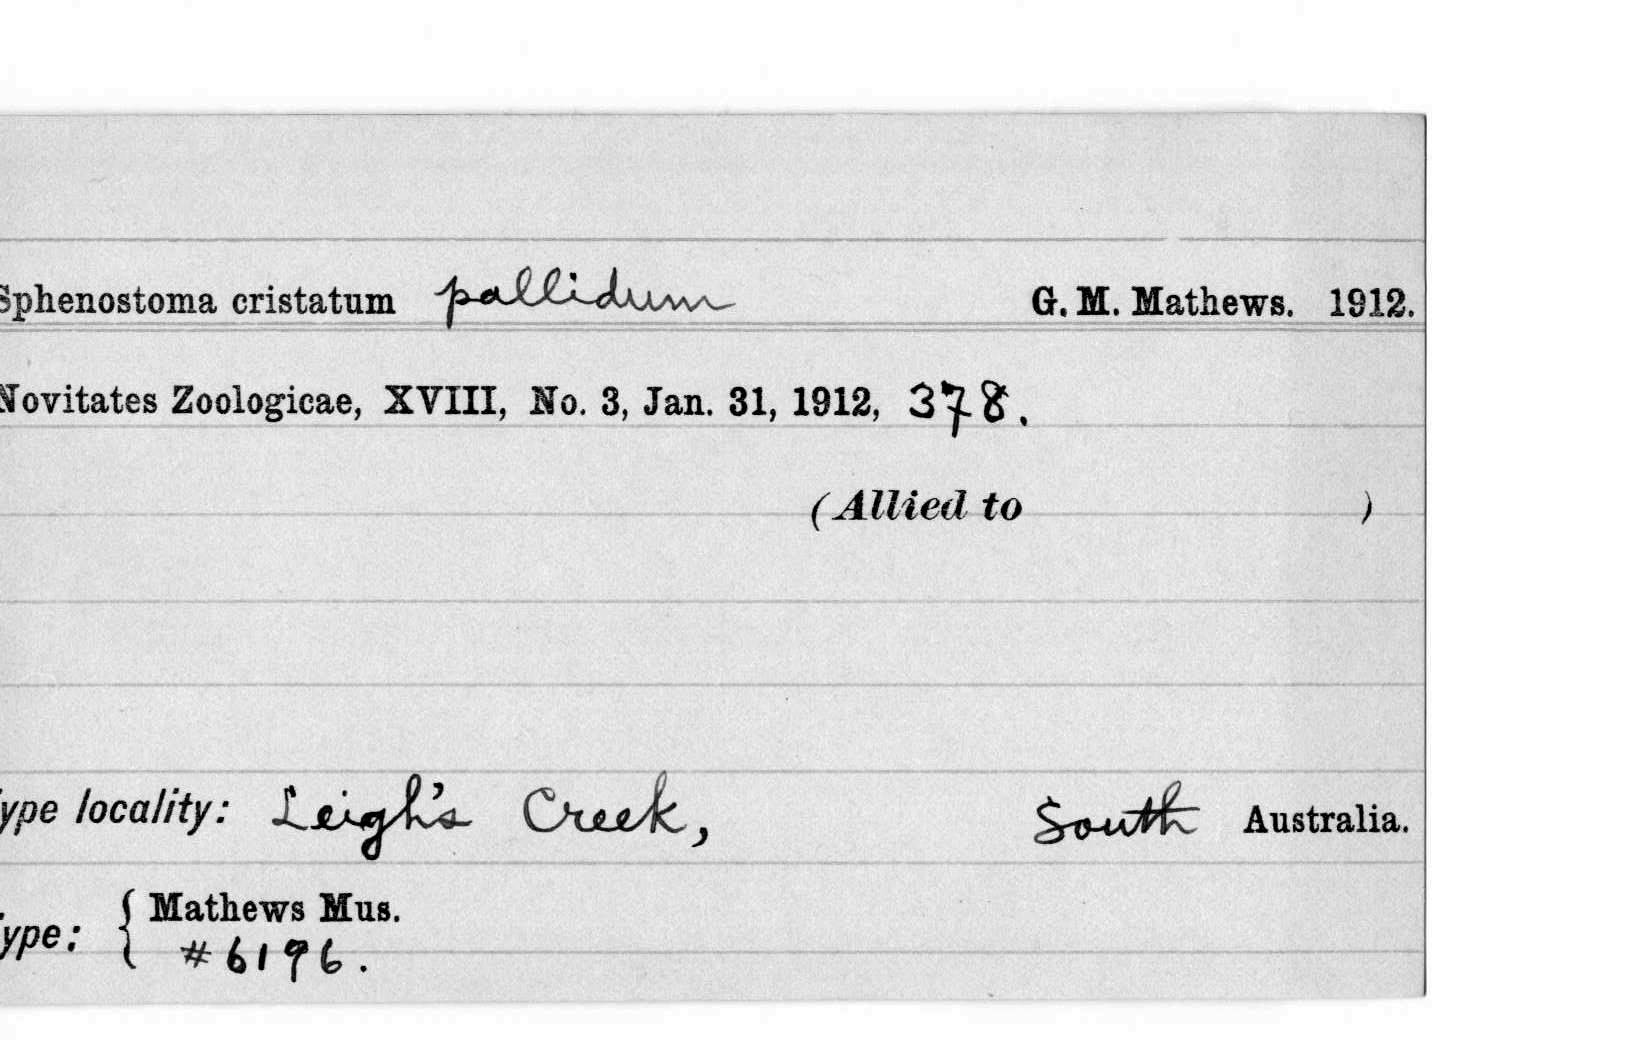 Sphenostoma cristatum pallidum G. M. Mathews. 1912.
Novitates Zoologicae, XVIII, No. 3, Jan. 31, 1912, 378.
(Allied to )
ype locality: Leigh's Creek, South Australia.
ype: { Mathews Mus.
#6196.